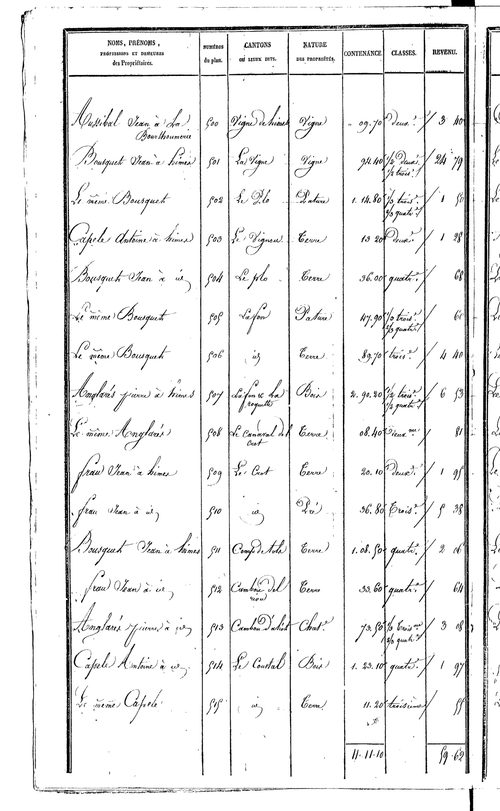 NOMS, PRÉNOMS, PROFESSIONS ET DEMEURES des Propriétaires. NUMÉROS du plan. CANTONS OU LIEUX DITS. NATURE DES PROPRIÉTÉS. CONTENANCE. CLASSES. REVENU.
Jean à La Bourdhoumerie 500 Vigne de himes Vigne 09.70 Deux.e 3 40
Bousquet Jean à himes 501 La Vigne Vigne 94.40 1/2 Deux. 1/2 trois. 24 79
Le même Bousquet 502 Le Plo Pature 1.14.80 1/2 trois. 1/2 quatr. 1 50
Capele Antoine à himes 503 Le Vignou Terre 13 20 Deux.e 1 28
Bousquet Jean à id 504 Le plo Terre 36.00 quatr.e 68
Le même Bousquet 505 Lafon Pature 47.90 1/2 trois. 1/2 quatr. 60
Le même Bousquet 506 id Terre 89.70 trois.e 4 40
Anglarés pierre à himes 507 Lafon & La roquette Bois 2.90.20 1/2 trois. 1/2 quatr. 6 53
Le même Anglarés 508 Le Canaval del Crot Terre 08.40 Deux.me 81
frau Jean à himes 509 Le Crot Terre 20.10 Deux.e 1 95
frau Jean à id 510 id Pré 36.80 Trois.e 5 38
Bousquet Jean à himes 511 Terre 1.08.50 quatr.e 2 06
frau Jean à id 512 Cambou del riou Terre 33.60 quatr.e 64
Anglarés pierre à id 513 Chat. 73.50 1/2 trois. 1/2 quatr. 3 08
Capele Antoine à id 514 Le Coustal Bois 1.23.10 quatr.e 1 97
Le même Capele 515 id Terre 11.20 troisième 55
11.11.10 59.62